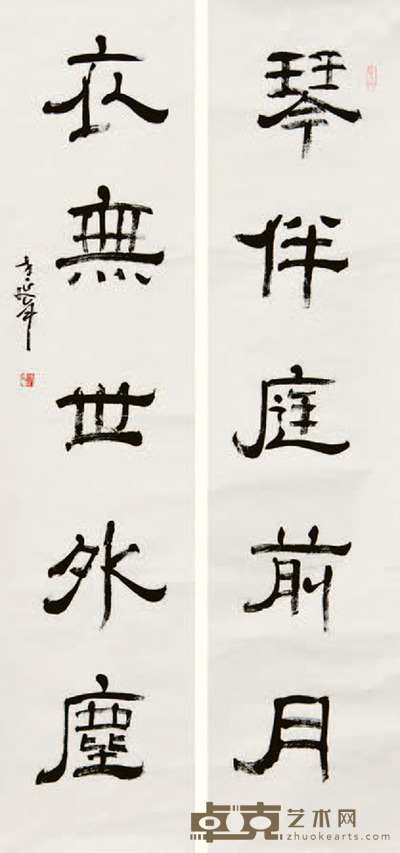 琴伴庭前月
衣無世外塵
卓克艺术网
zhuokearts.com